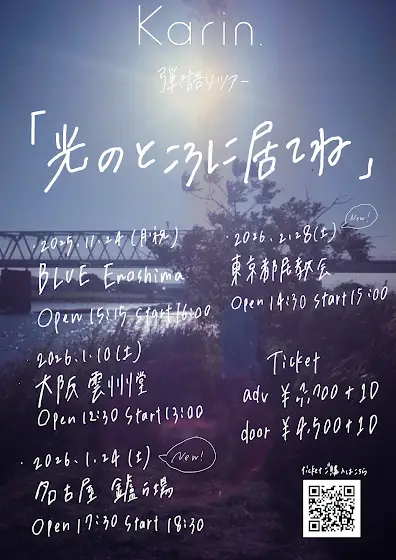 Karin.
弾き語りツアー
「光のところに居てね」
・2025.11.24(月・祝)
BLUE Enoshima
Open 15:15 Start 16:00
・2026.1.10(土)
大阪 雲州堂
Open 12:30 Start 13:00
・2026.1.24(土) New!
名古屋 鑪ら場
Open 17:30 Start 18:30
・2026.2.28(土) New!
東京都民教会
Open 14:30 Start 15:00
Ticket
adv ¥ ,700+1D
door ¥4,500+1D
ticketご購入はこちら